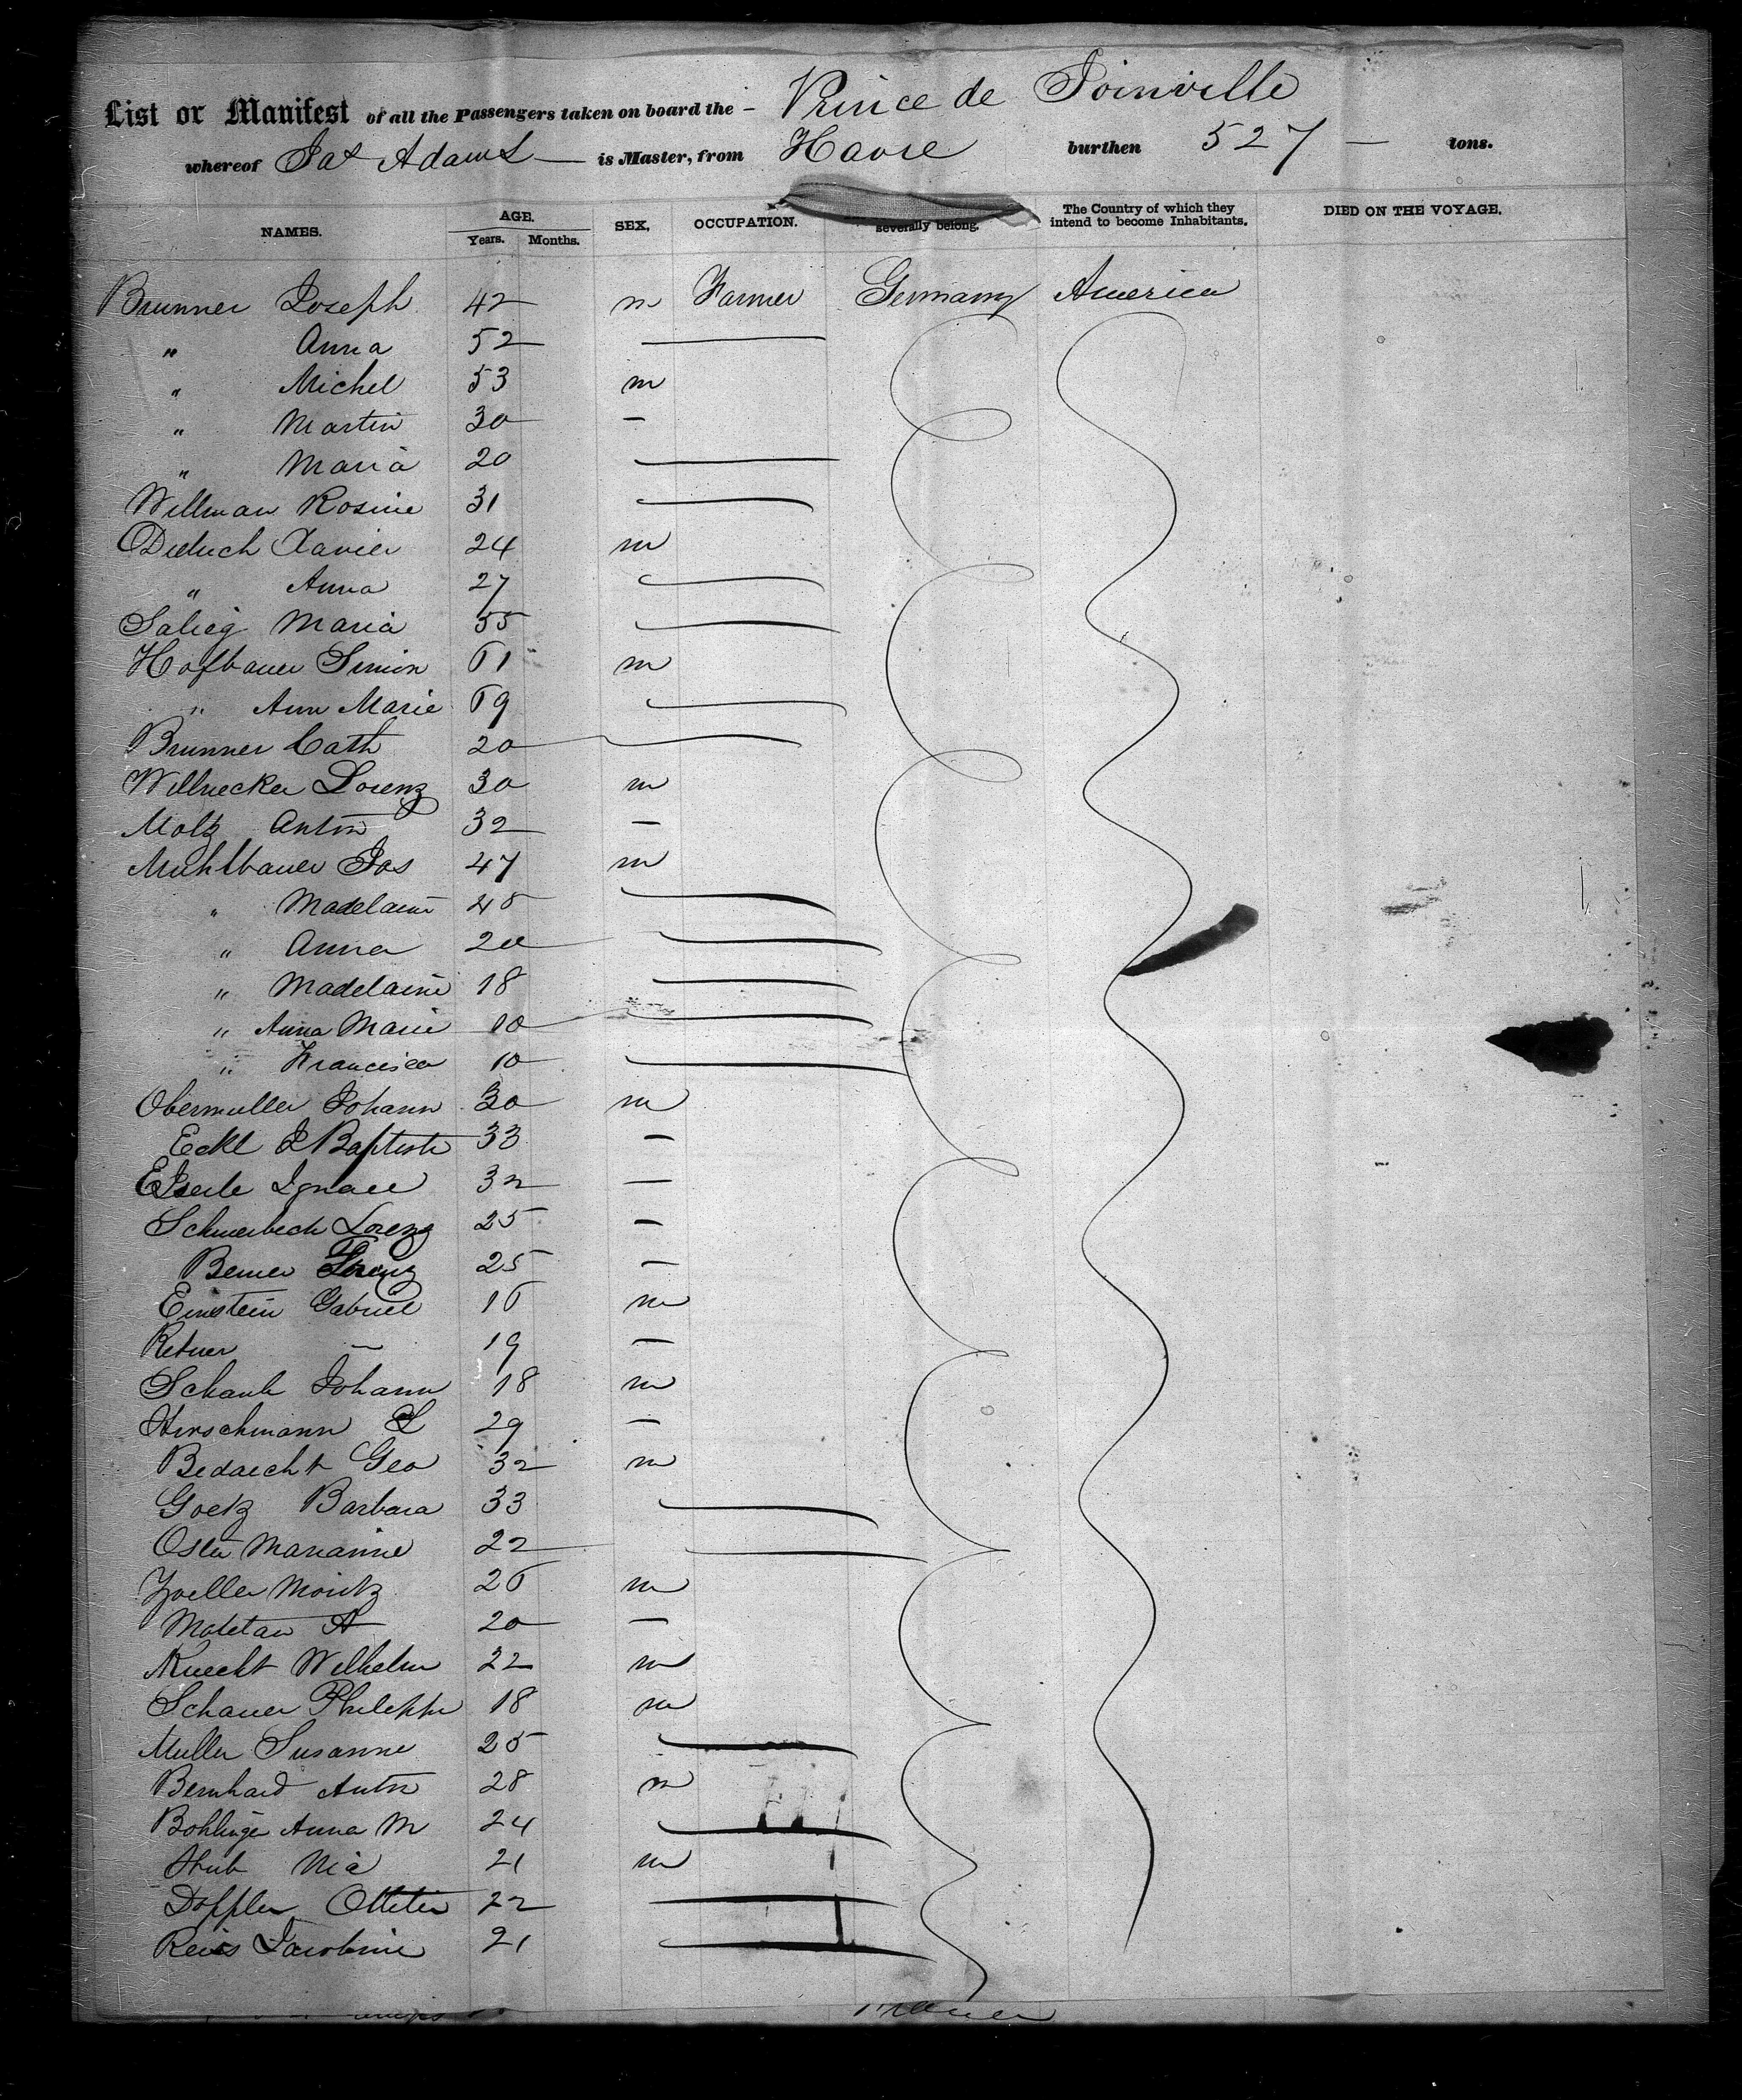 List or Manifest of all the Passengers taken on board the - Prince de Joinville
whereof Jas Adams is Master, from Havre burthen 527 — tons.
NAMES. AGE. Years. Months. SEX. OCCUPATION. severally belong. The Country of which they intend to become Inhabitants. DIED ON THE VOYAGE.
Brunner Joseph 42 m Farmer Germany America
" Anna 52
" Michel 53 m
" Martin 30 —
" Maria 20
Willman Rosine 31
Xavier 24 m
" Anna 27
Maria 55
Hofbauer Simon 61 m
" Ann Marie 69
Brunner Cath 20
Willnecker Lorenz 30 m
Moltz Anton 32 —
Muhlbauer Jos 47 m
" Madelaine
" Anna 20
" Madelaine 18
" Anna Marie 10
" Francisca 10
Obermuller Johann 30 m
Eckl J Baptiste 33 —
Ignace 32 —
Lorenz 25 —
25 —
Einstein Gabriel 16 m
19 —
Johann 18 m
Hirschmann 29 —
Geo 32 m
Goetz Barbara 33
Marianne 22
Zoeller Moritz 26 m
A 20 —
Knecht Wilhelm 22 m
Schauer Philippe 18 m
Muller Susanne 25
Bernhard Anton 28 m
Bohlinger Anna M 24
21 m
Doppler 22
Reiss Jacobine 21